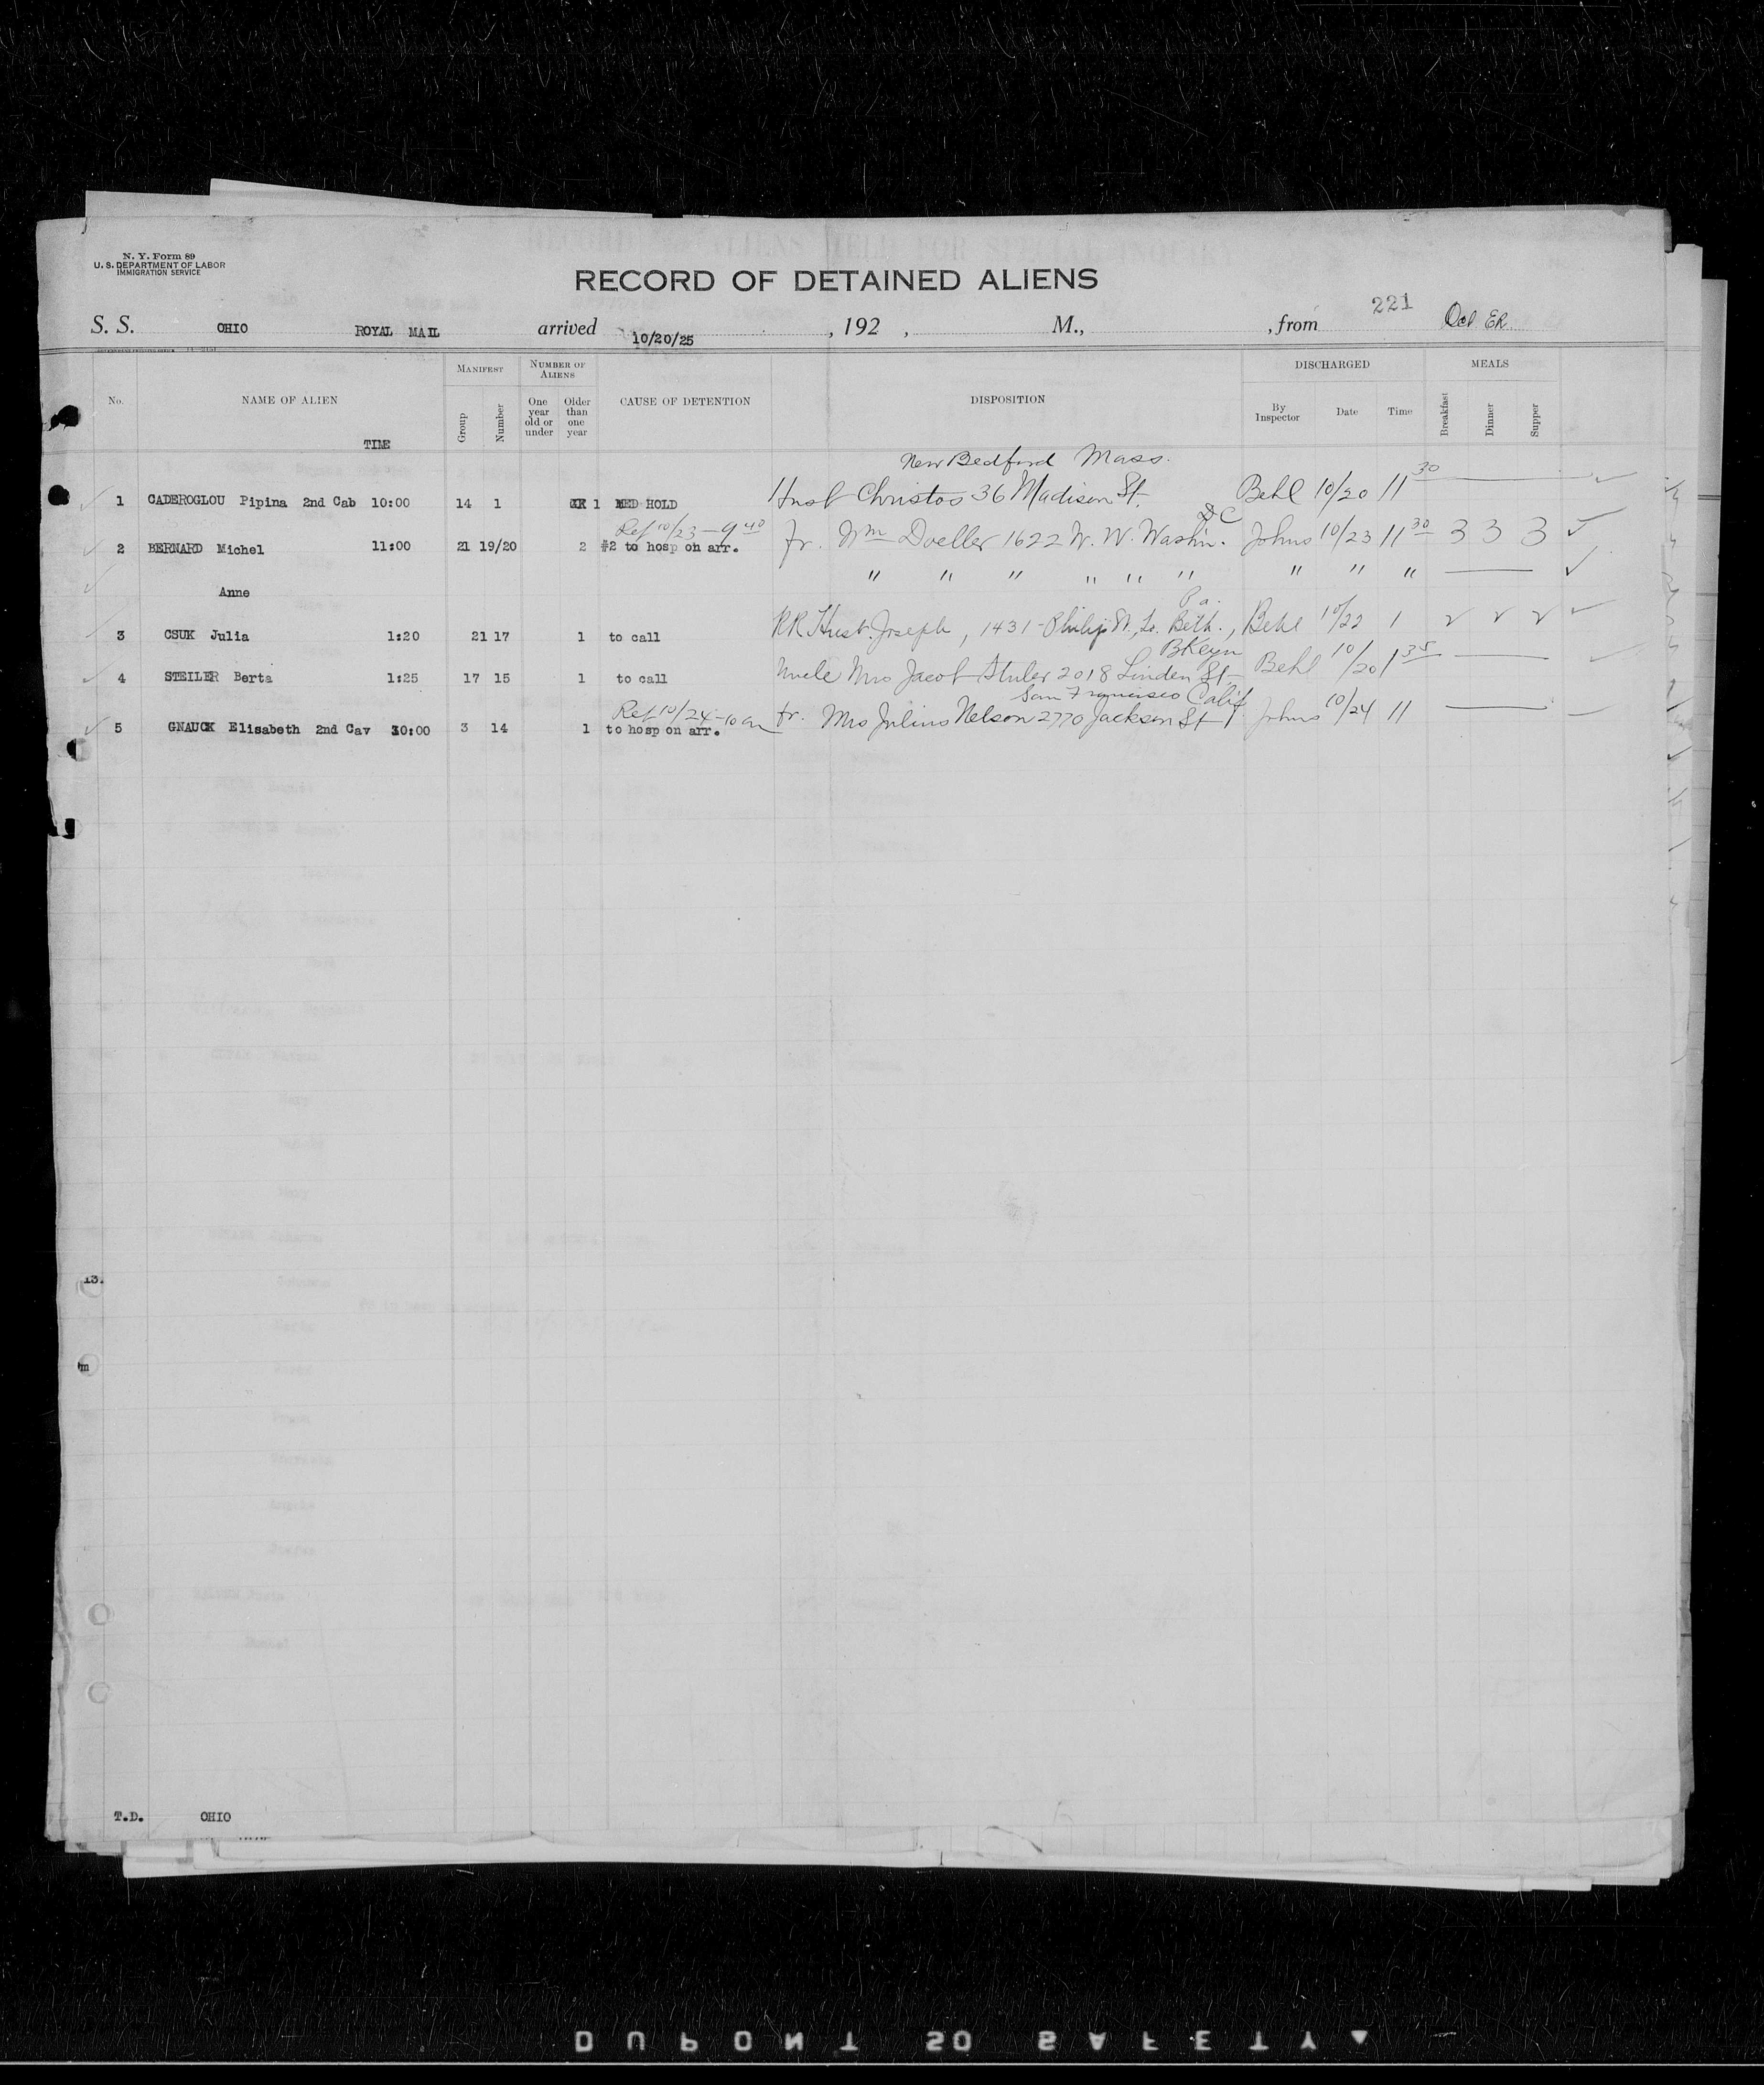 N. Y. Form 89
U. S. DEPARTMENT OF LABOR
IMMIGRATION SERVICE
RECORD OF DETAINED ALIENS
221
S. S. OHIO ROYAL MAIL arrived 10/20/25, 192 , M., , from
No. NAME OF ALIEN TIME MANIFEST Group Number NUMBER OF ALIENS One year old or under Older than one year CAUSE OF DETENTION DISPOSITION DISCHARGED By Inspector Date Time MEALS Breakfast Dinner Supper
New Bedford Mass.
1 CADEROGLOU Pipina 2nd Cab 10:00 14 1 1 MED HOLD Husb Christos 36 Madison St. Behl 10/20 11 30
Ref 10/23 - 9 40 DC
2 BERNARD Michel 11:00 21 19/20 2 #2 to hosp on arr. fr. Wm Doeller 1622 N. W. Washn. Johns 10/23 11 30 3 3 3
Anne " " " " " " " " "
Pa.
3 CSUK Julia 1:20 21 17 1 to call RR Husb. Joseph, 1431 - Philip St., So. Beth., Behl 10/22 1 2 2 2
BKlyn
4 STEILER Berta 1:25 17 15 1 to call Uncle Mrs Jacob 2018 Linden St. Behl 10/20 1 35
San Francisco Calif
Ref 10/24 - 10 am
5 GNAUCK Elisabeth 2nd Cav 10:00 3 14 1 to hosp on arr. fr. Mrs Julius Nelson 2770 Jackson St Johns 10/24 11
13.
m
T.D. OHIO
DUPONT SAFETY